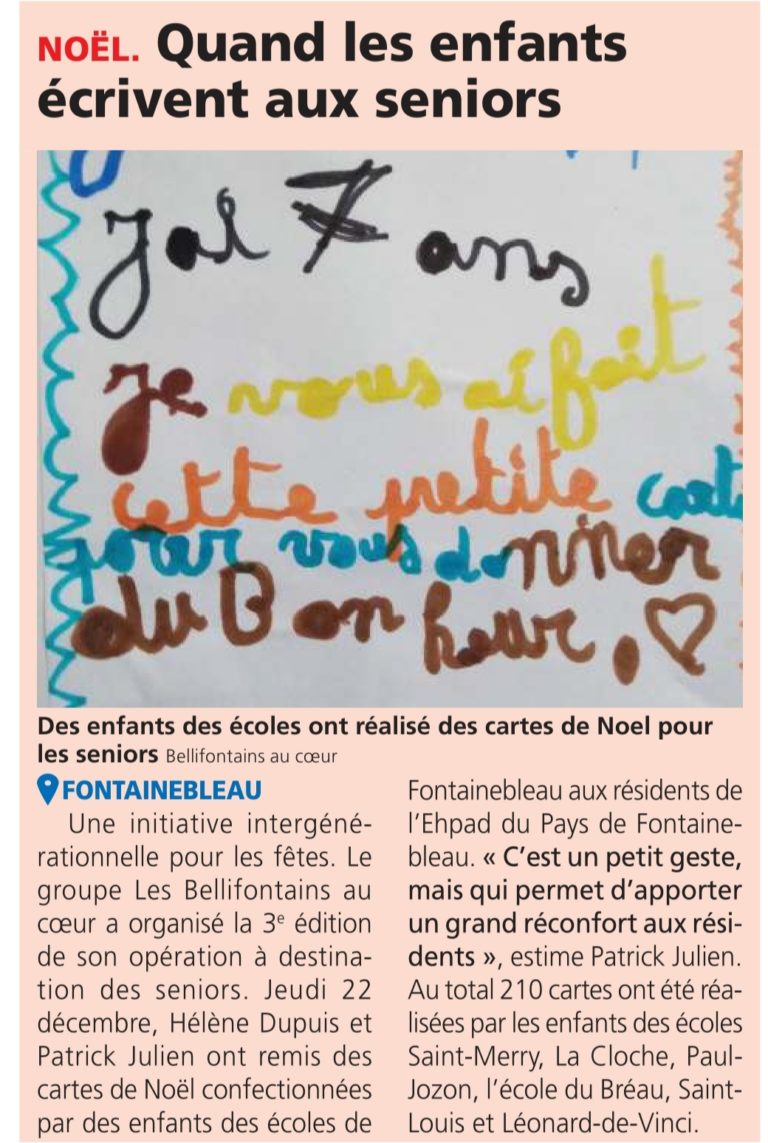 NOËL. Quand les enfants
écrivent aux seniors
J'ai 7 ans
je vous ai fait
cette petite cart
pour vous donner
du Bonheur. ♡
Des enfants des écoles ont réalisé des cartes de Noel pour
les seniors Bellifontains au cœur
FONTAINEBLEAU
Une initiative intergéné-
rationnelle pour les fêtes. Le
groupe Les Bellifontains au
cœur a organisé la 3e édition
de son opération à destina-
tion des seniors. Jeudi 22
décembre, Hélène Dupuis et
Patrick Julien ont remis des
cartes de Noël confectionnées
par des enfants des écoles de
Fontainebleau aux résidents de
l'Ehpad du Pays de Fontaine-
bleau. « C'est un petit geste,
mais qui permet d'apporter
un grand réconfort aux rési-
dents », estime Patrick Julien.
Au total 210 cartes ont été réa-
lisées par les enfants des écoles
Saint-Merry, La Cloche, Paul-
Jozon, l'école du Bréau, Saint-
Louis et Léonard-de-Vinci.